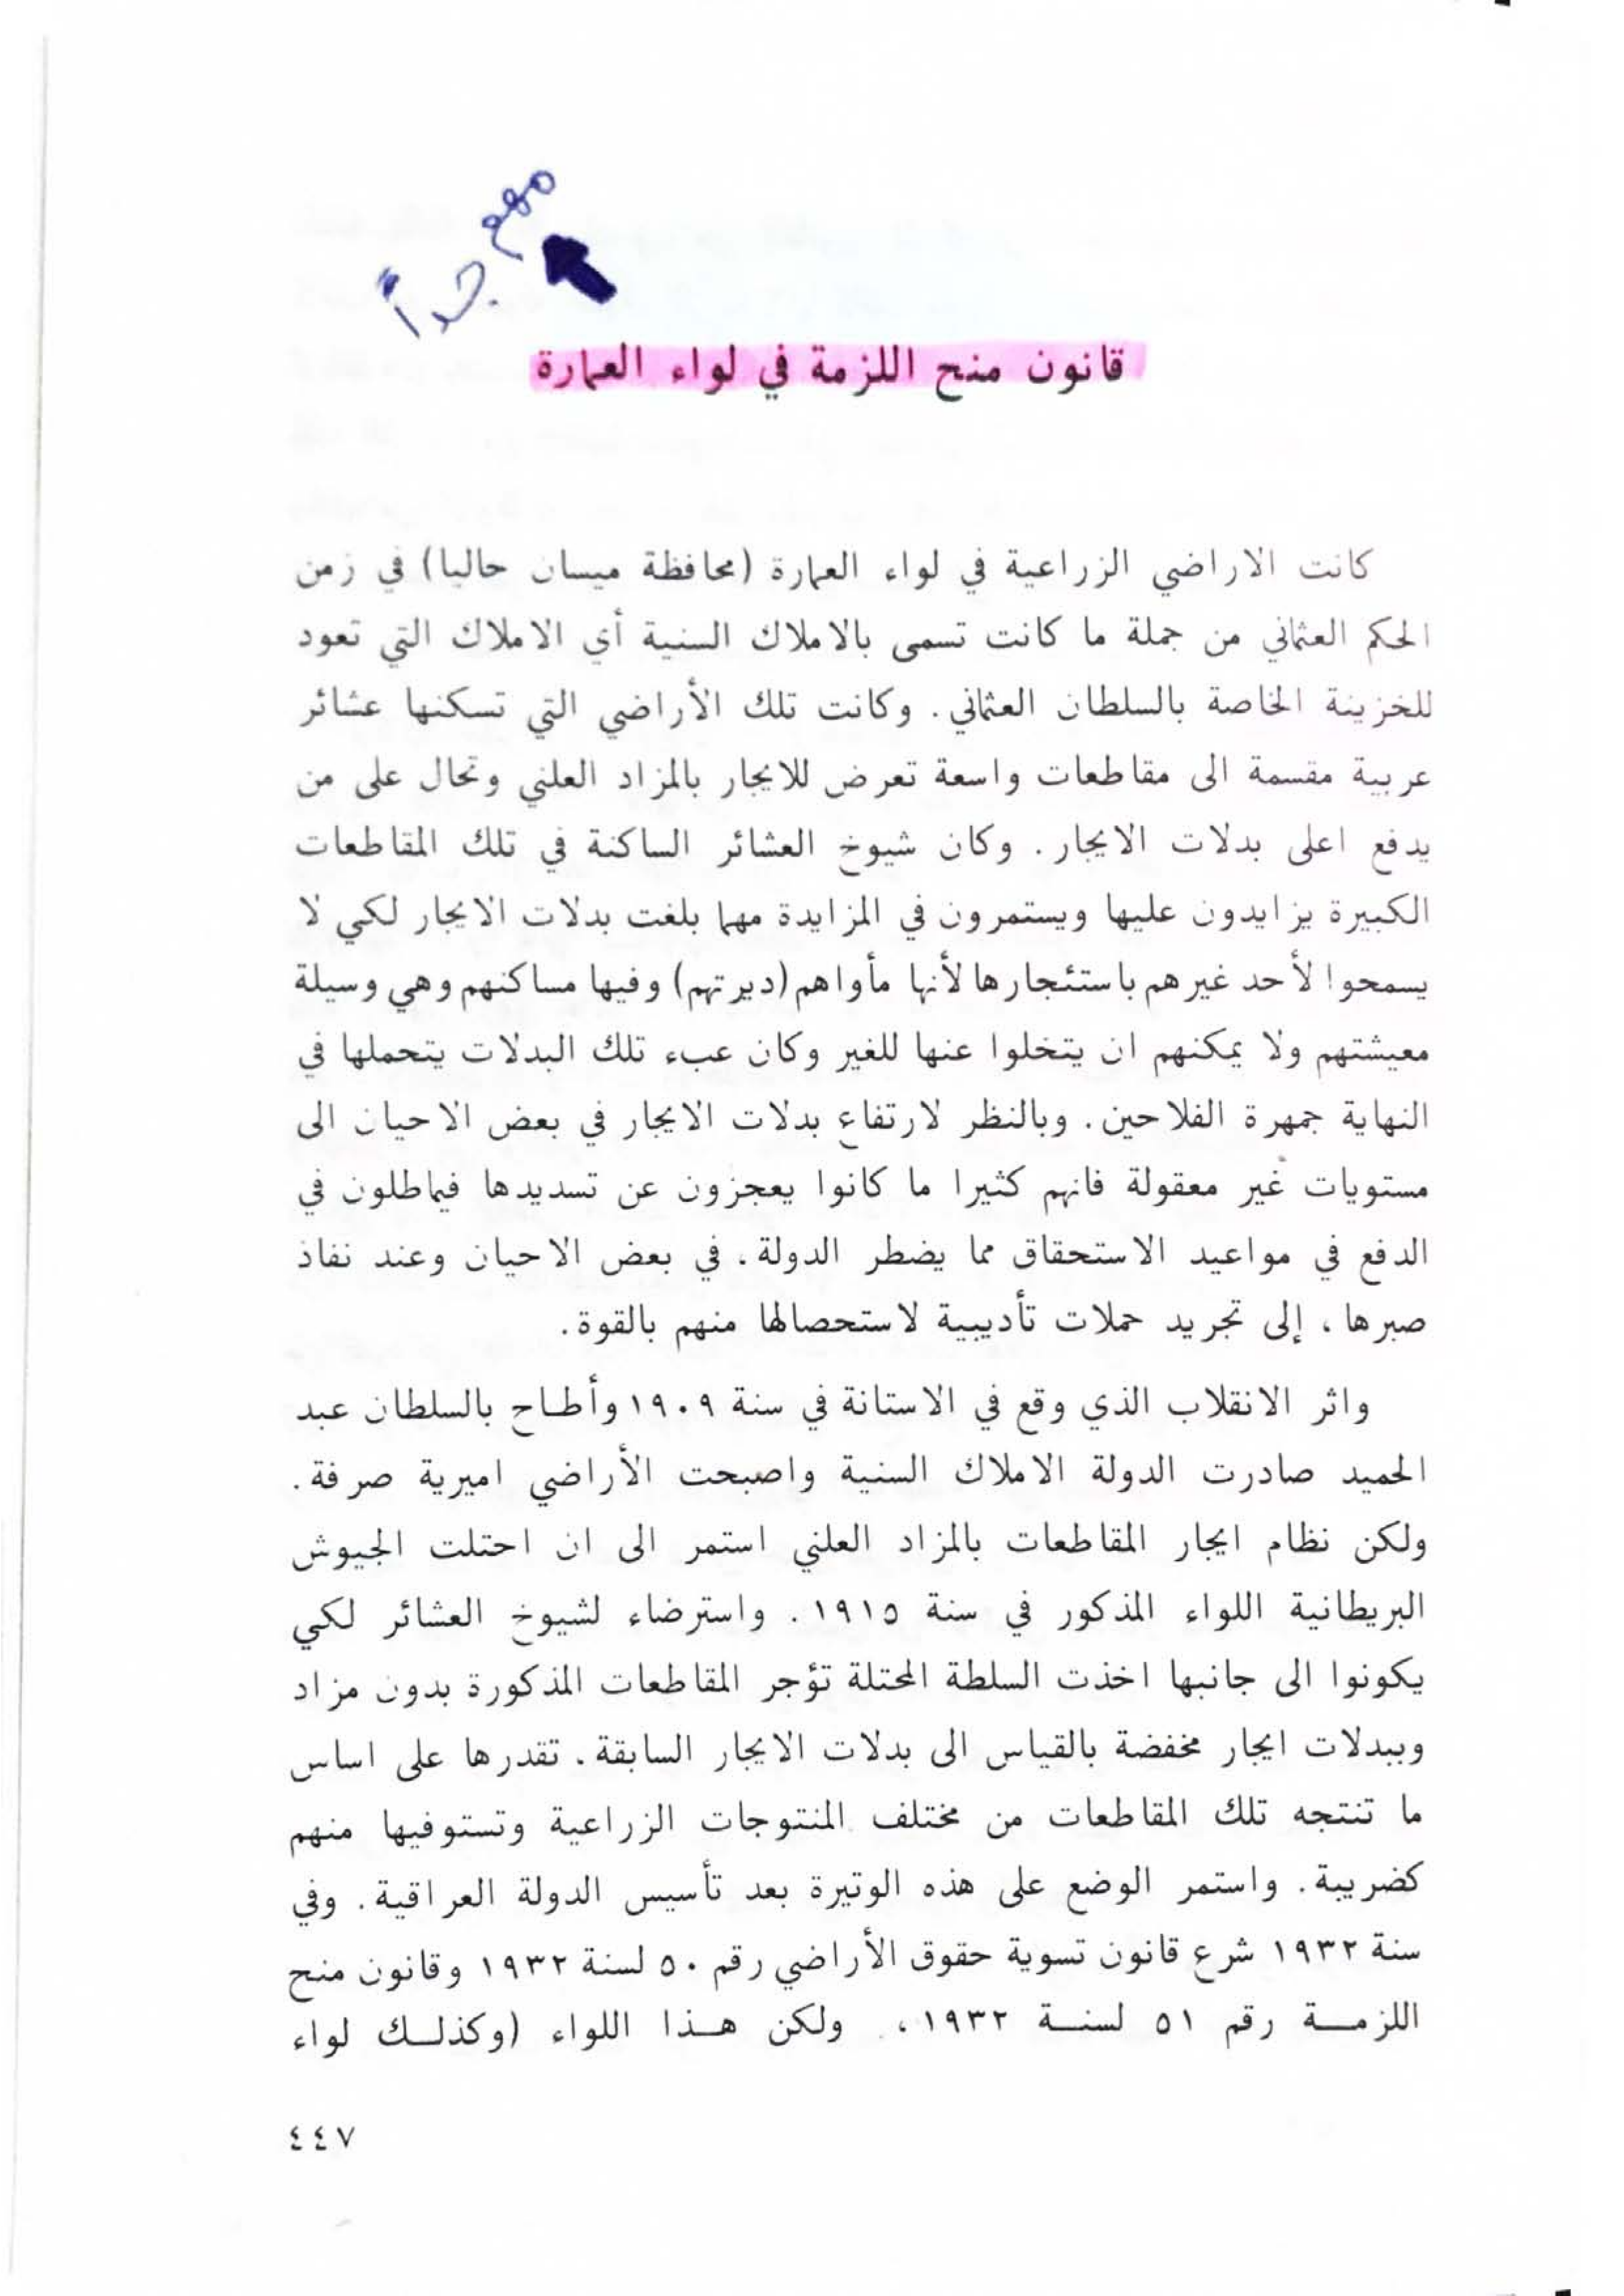 مهم
جداً
قانون منح اللزمة في لواء العمارة
كانت الاراضي الزراعية في لواء العمارة (محافظة ميسان حاليا) في زمن
الحكم العثماني من جملة ما كانت تسمى بالاملاك السنية أي الاملاك التي تعود
للخزينة الخاصة بالسلطان العثماني. وكانت تلك الأراضي التي تسكنها عشائر
عربية مقسمة الى مقاطعات واسعة تعرض للايجار بالمزاد العلني وتحال على من
يدفع اعلى بدلات الايجار. وكان شيوخ العشائر الساكنة في تلك المقاطعات
الكبيرة يزايدون عليها ويستمرون في المزايدة مهما بلغت بدلات الايجار لكي لا
يسمحوا لأحد غيرهم باستئجارها لأنها مأواهم (ديرتهم) وفيها مساكنهم وهي وسيلة
معيشتهم ولا يمكنهم ان يتخلوا عنها للغير وكان عبء تلك البدلات يتحملها في
النهاية جمهرة الفلاحين. وبالنظر لارتفاع بدلات الايجار في بعض الاحيان الى
مستويات غير معقولة فانهم كثيرا ما كانوا يعجزون عن تسديدها فيماطلون في
الدفع في مواعيد الاستحقاق مما يضطر الدولة، في بعض الاحيان وعند نفاذ
صبرها، إلى تجريد حملات تأديبية لاستحصالها منهم بالقوة.
واثر الانقلاب الذي وقع في الاستانة في سنة ١٩٠٩ وأطاح بالسلطان عبد
الحميد صادرت الدولة الاملاك السنية واصبحت الأراضي اميرية صرفة.
ولكن نظام ايجار المقاطعات بالمزاد العلني استمر الى ان احتلت الجيوش
البريطانية اللواء المذكور في سنة ١٩١٥. واسترضاء لشيوخ العشائر لكي
يكونوا الى جانبها اخذت السلطة المحتلة تؤجر المقاطعات المذكورة بدون مزاد
وببدلات ايجار مخفضة بالقياس الى بدلات الايجار السابقة. تقدرها على اساس
ما تنتجه تلك المقاطعات من مختلف المنتوجات الزراعية وتستوفيها منهم
كضريبة. واستمر الوضع على هذه الوتيرة بعد تأسيس الدولة العراقية. وفي
سنة ١٩٣٢ شرع قانون تسوية حقوق الأراضي رقم ٥٠ لسنة ١٩٣٢ وقانون منح
اللزمــة رقم ٥١ لسنــة ١٩٣٢، ولكن هــذا اللواء (وكذلــك لواء
٤٤٧